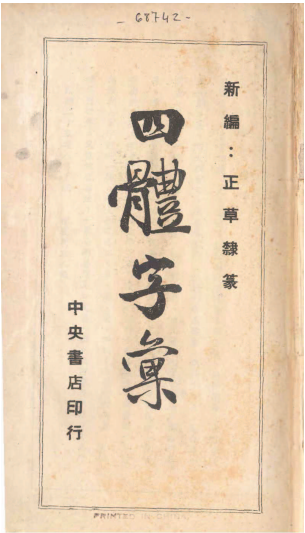 - 68742 -
新編：正草隸篆
四體字彙
中央書店印行
PRINTED IN CHINA